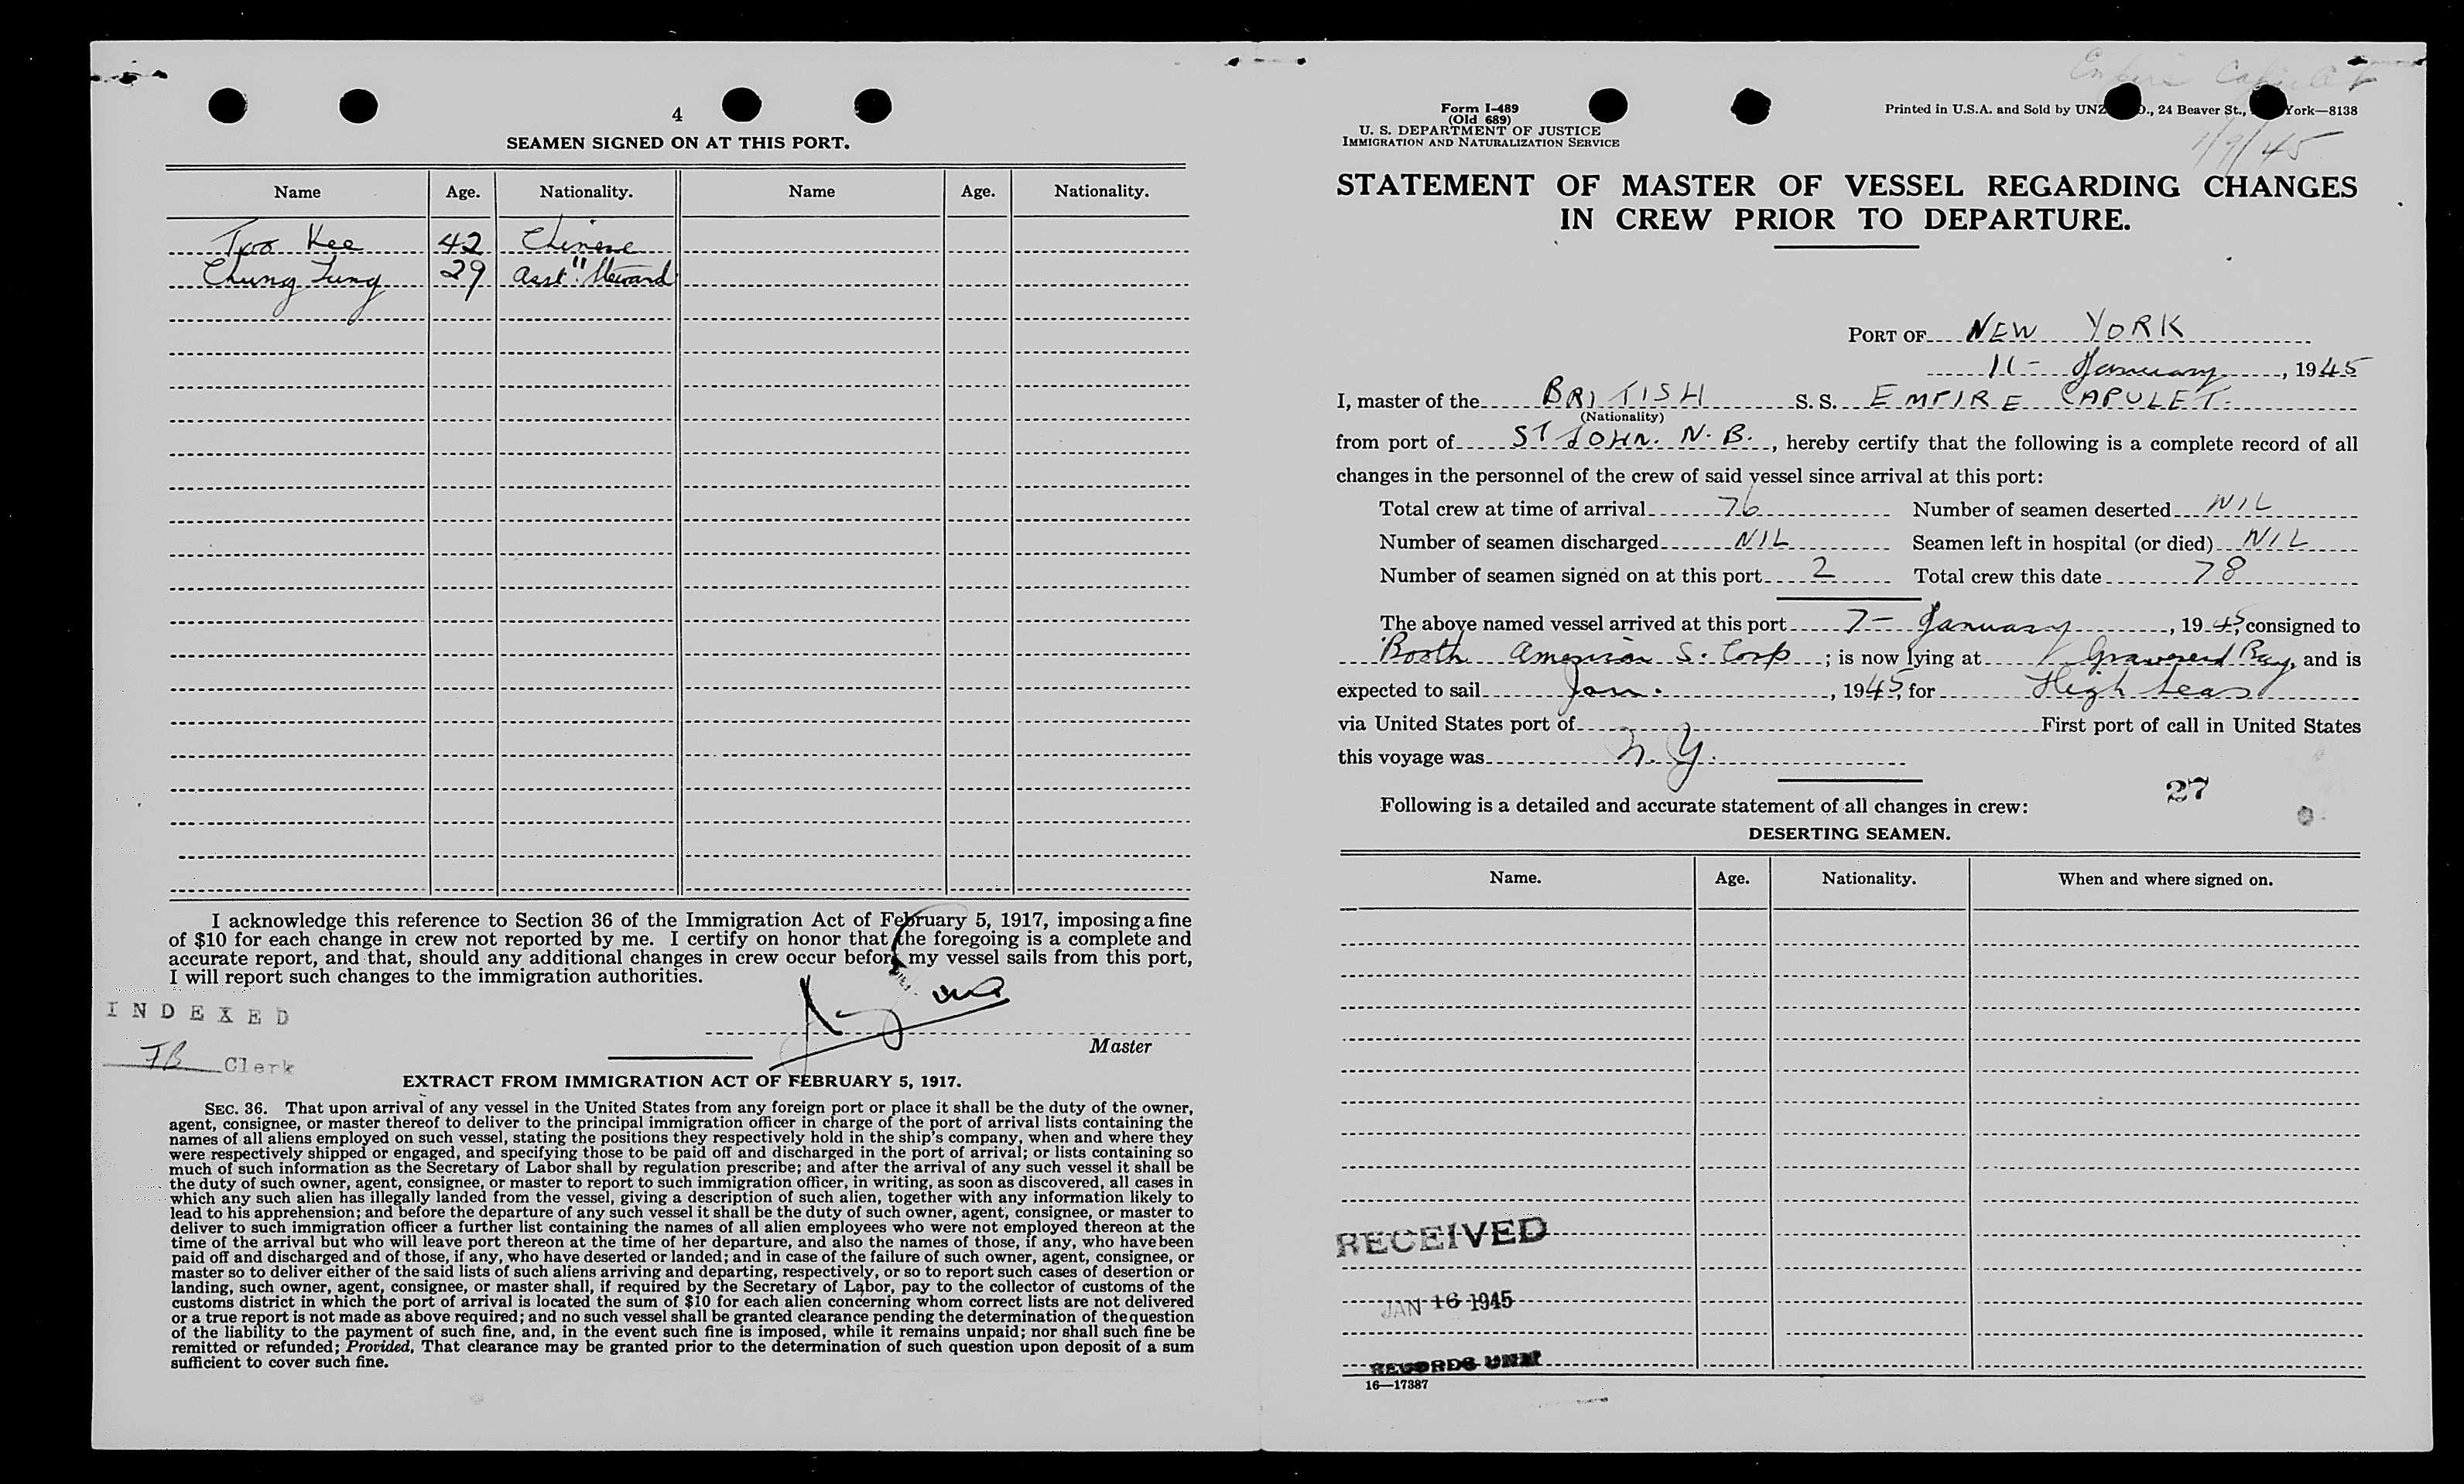 4
SEAMEN SIGNED ON AT THIS PORT.
Name Age. Nationality. Name Age. Nationality.
Kee 42 Chinese
Chung Tung 29 " Asst. Steward
I acknowledge this reference to Section 36 of the Immigration Act of February 5, 1917, imposing a fine
of $10 for each change in crew not reported by me. I certify on honor that the foregoing is a complete and
accurate report, and that, should any additional changes in crew occur before my vessel sails from this port,
I will report such changes to the immigration authorities.
INDEXED
Master
JB Clerk
EXTRACT FROM IMMIGRATION ACT OF FEBRUARY 5, 1917.
SEC. 36. That upon arrival of any vessel in the United States from any foreign port or place it shall be the duty of the owner,
agent, consignee, or master thereof to deliver to the principal immigration officer in charge of the port of arrival lists containing the
names of all aliens employed on such vessel, stating the positions they respectively hold in the ship's company, when and where they
were respectively shipped or engaged, and specifying those to be paid off and discharged in the port of arrival; or lists containing so
much of such information as the Secretary of Labor shall by regulation prescribe; and after the arrival of any such vessel it shall be
the duty of such owner, agent, consignee, or master to report to such immigration officer, in writing, as soon as discovered, all cases in
which any such alien has illegally landed from the vessel, giving a description of such alien, together with any information likely to
lead to his apprehension; and before the departure of any such vessel it shall be the duty of such owner, agent, consignee, or master to
deliver to such immigration officer a further list containing the names of all alien employees who were not employed thereon at the
time of the arrival but who will leave port thereon at the time of her departure, and also the names of those, if any, who have been
paid off and discharged and of those, if any, who have deserted or landed; and in case of the failure of such owner, agent, consignee, or
master so to deliver either of the said lists of such aliens arriving and departing, respectively, or so to report such cases of desertion or
landing, such owner, agent, consignee, or master shall, if required by the Secretary of Labor, pay to the collector of customs of the
customs district in which the port of arrival is located the sum of $10 for each alien concerning whom correct lists are not delivered
or a true report is not made as above required; and no such vessel shall be granted clearance pending the determination of the question
of the liability to the payment of such fine, and, in the event such fine is imposed, while it remains unpaid; nor shall such fine be
remitted or refunded; Provided, That clearance may be granted prior to the determination of such question upon deposit of a sum
sufficient to cover such fine.
Empire Capulet
Form I-489
(Old 689)
U. S. DEPARTMENT OF JUSTICE
IMMIGRATION AND NATURALIZATION SERVICE
Printed in U.S.A. and Sold by UNZ ., 24 Beaver St., York—8138
1/9/45
STATEMENT OF MASTER OF VESSEL REGARDING CHANGES
IN CREW PRIOR TO DEPARTURE.
PORT OF NEW YORK
11- January, 1945
I, master of the BRITISH S. S. EMPIRE CAPULET.
(Nationality)
from port of ST JOHN. N. B., hereby certify that the following is a complete record of all
changes in the personnel of the crew of said vessel since arrival at this port:
Total crew at time of arrival 76 Number of seamen deserted NIL
Number of seamen discharged NIL Seamen left in hospital (or died) NIL
Number of seamen signed on at this port 2 Total crew this date 78
The above named vessel arrived at this port 7- January, 1945, consigned to
Booth American S. Corp; is now lying at Gravesend Bay, and is
expected to sail Jan., 1945, for High Seas
via United States port of First port of call in United States
this voyage was N.Y.
27
Following is a detailed and accurate statement of all changes in crew:
DESERTING SEAMEN.
Name. Age. Nationality. When and where signed on.
RECEIVED
JAN 16 1945
RECORDS UNIT
16—17387